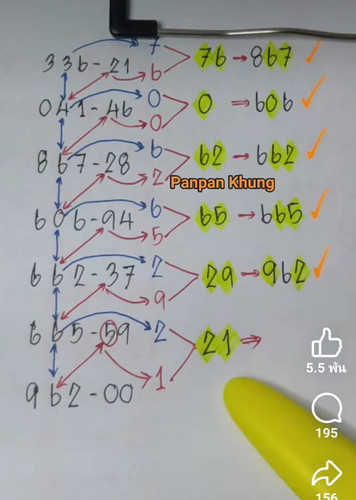 336-21 7 6 > 76 → 867 ✓
041-46 0 0 > 0 ⇒ 606 ✓
867-28 6 2 > 62 → 662 ✓
Panpan Khung
606-94 6 5 > 65 → 665 ✓
662-37 2 9 > 29 → 962 ✓
665-59 2 1 > 21 ⇒
962-00
5.5 พัน
195
156